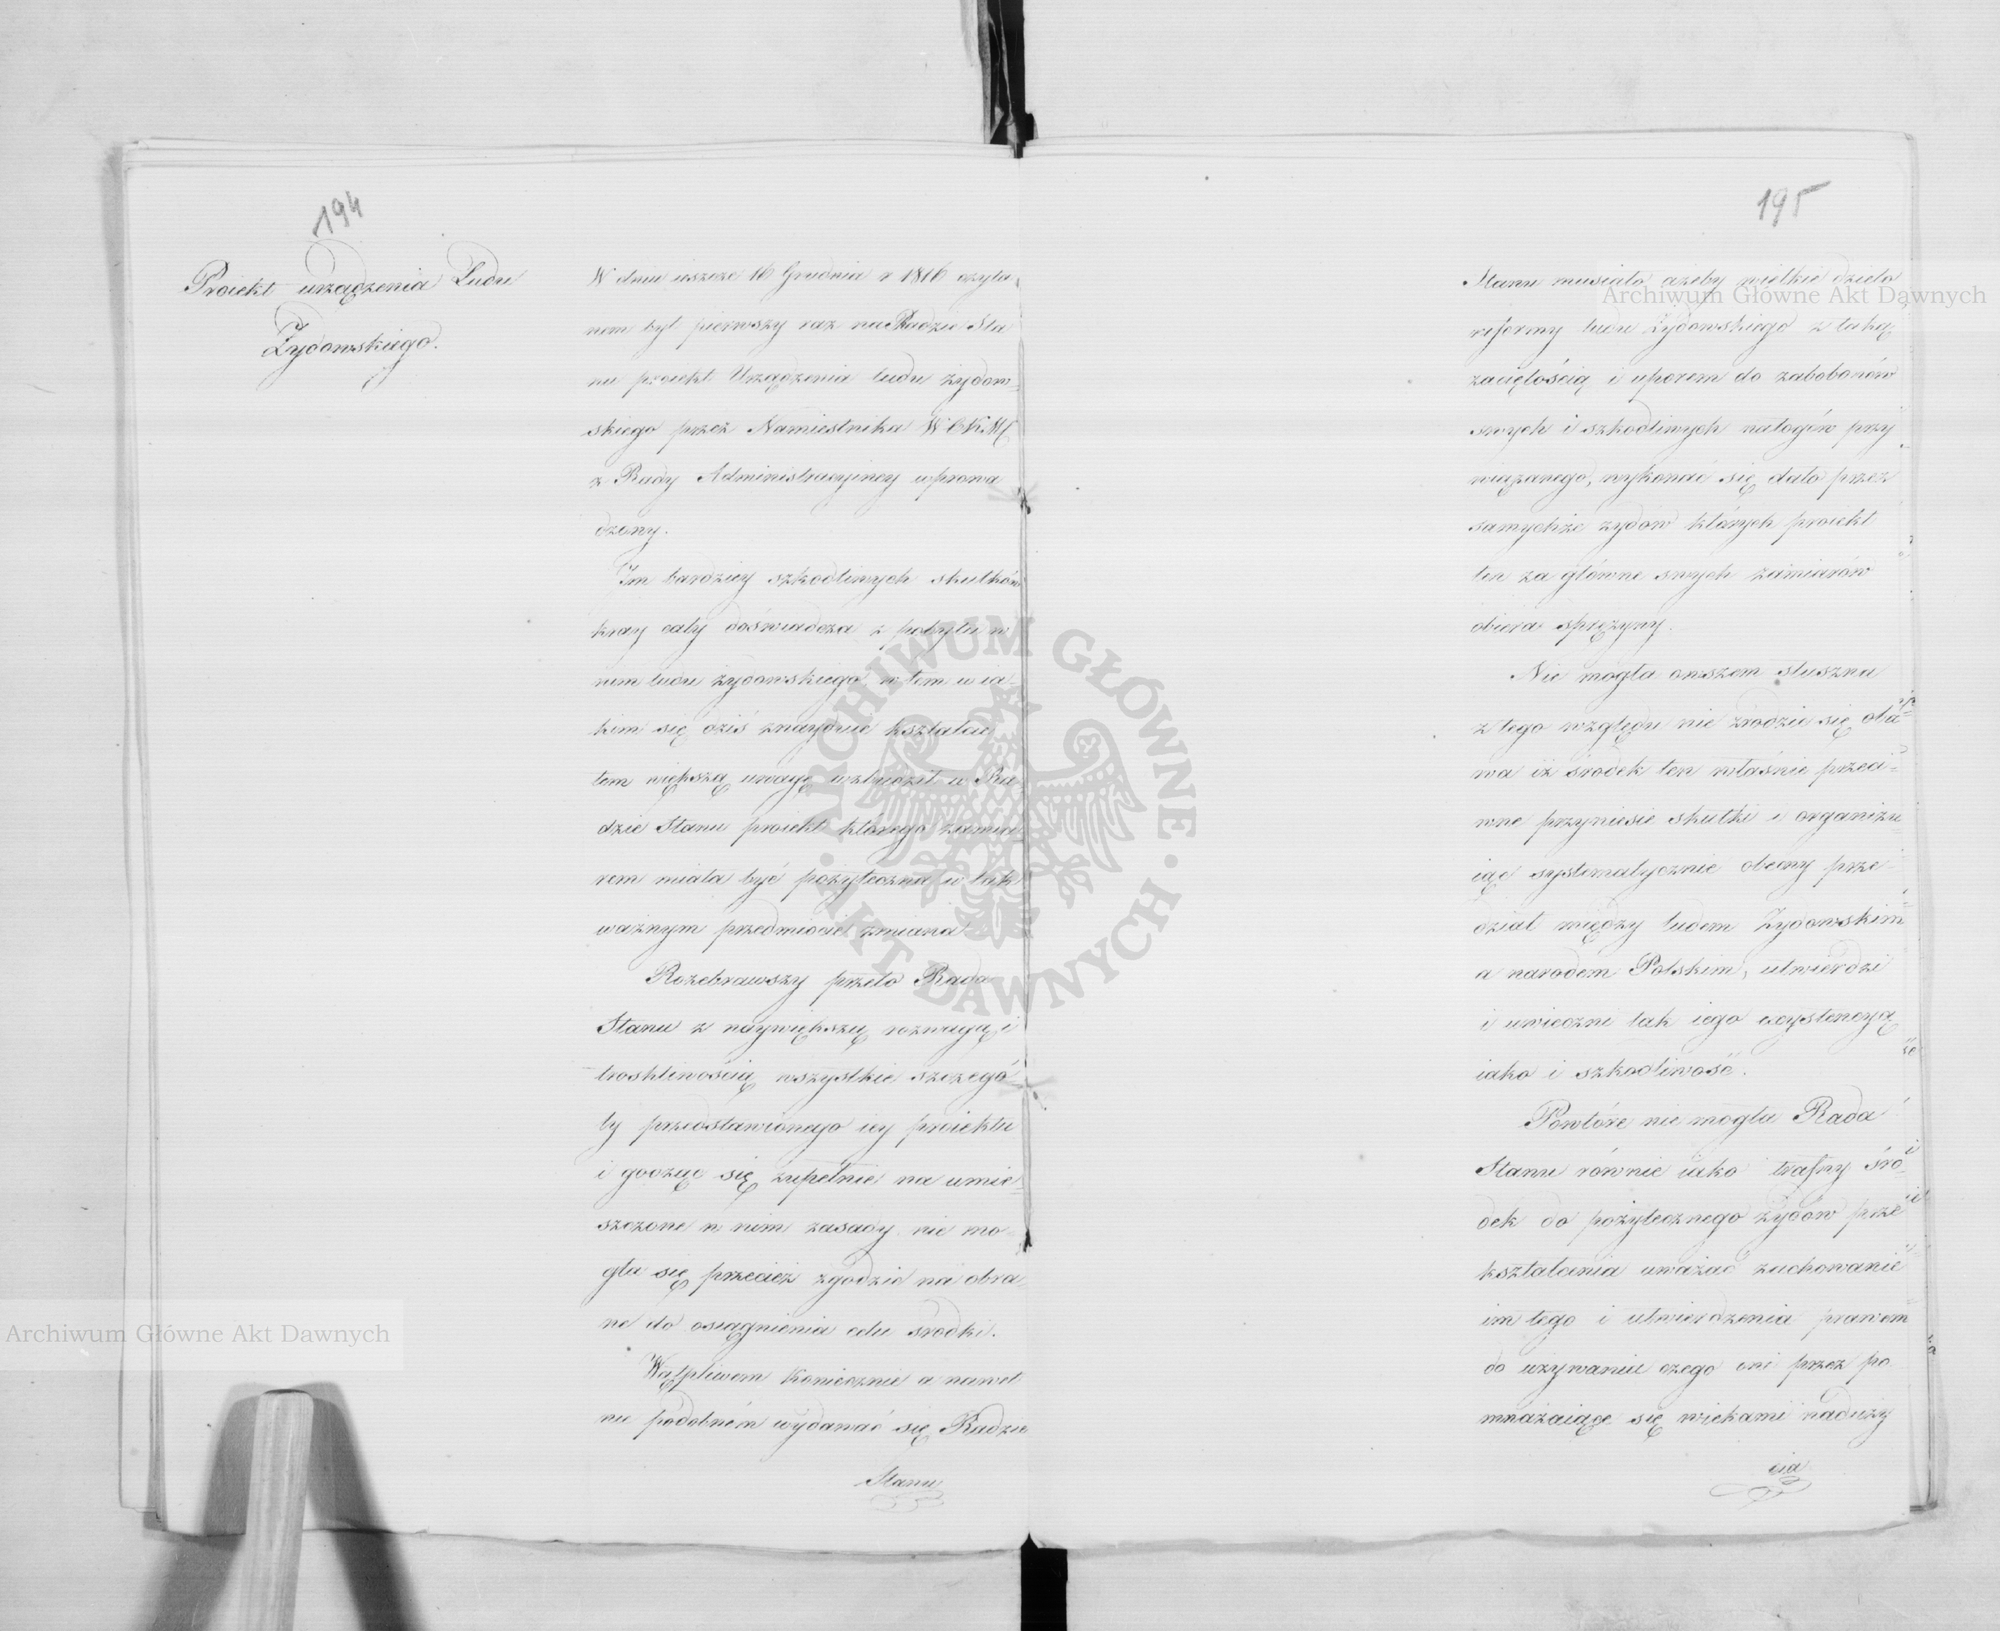 194
Proiekt urządzenia Ludu
Żydowskiego.
W dniu ieszcze 16 Grudnia r 1816 czyta
nem był pierwszy raz na Radzie Sta
nu proiekt Urządzenia ludu żydow-
skiego przez Namiestnika W C K M
z Rady Administracyiney wprowa
dzony.
Im bardziey szkodliwych skutków
kray cały doświadcza z pobytu w
nim ludu żydowskiego w tem w ia-
kim się dziś znayduie kształcie
tem większą uwagę wzbudził w Ra-
dzie Stanu proiekt którego zamia
rem miała być pożyteczna w tak
ważnym przedmiocie zmiana
Rozebrawszy przeto Rada
Stanu z naywiększą rozwagą i
troskliwością wszystkie szczegó
ły przedstawionego iey proiektu
i godząc się zupełnie na umie-
szczone w nim zasady nie mo
gła się przecież zgodzić na obra-
ne do osiągnienia celu środki.
Wątpliwem koniecznie a nawet
nie podobném wydawać się Radzie
Stanu
195
Stanu musiało ażeby wielkie dzieło
reformy ludu Żydowskiego z taką
zaciętością i uporem do zabobonów
swych i szkodliwych nałogów przy
wiązanego, wykonać się dało przez
samychże żydów których proiekt
ten za główne swych zamiarów
obiera sprężyny.
Nie mogła owszem słuszna
z tego względu nie zrodzić się oba-
wa iż środek ten właśnie przeci-
wne przyniesie skutki i organizu
iąc systematycznie obecny prze-
dział między ludem Żydowskim
a narodem Polskim, utwierdzi
i uwieczni tak iego exystencyą
iako i szkodliwość.
Powtóre nie mogła Rada
Stanu równie iako trafny śro-
dek do pożytecznego żydów prze
kształcenia uważać zachowanie
im tego i utwierdzenia prawem
do używania czego oni przez po
mnażaiące się wiekami naduży
cia
Archiwum Główne Akt Dawnych
Archiwum Główne Akt Dawnych
ARCHIWUM GŁÓWNE · AKT DAWNYCH ·